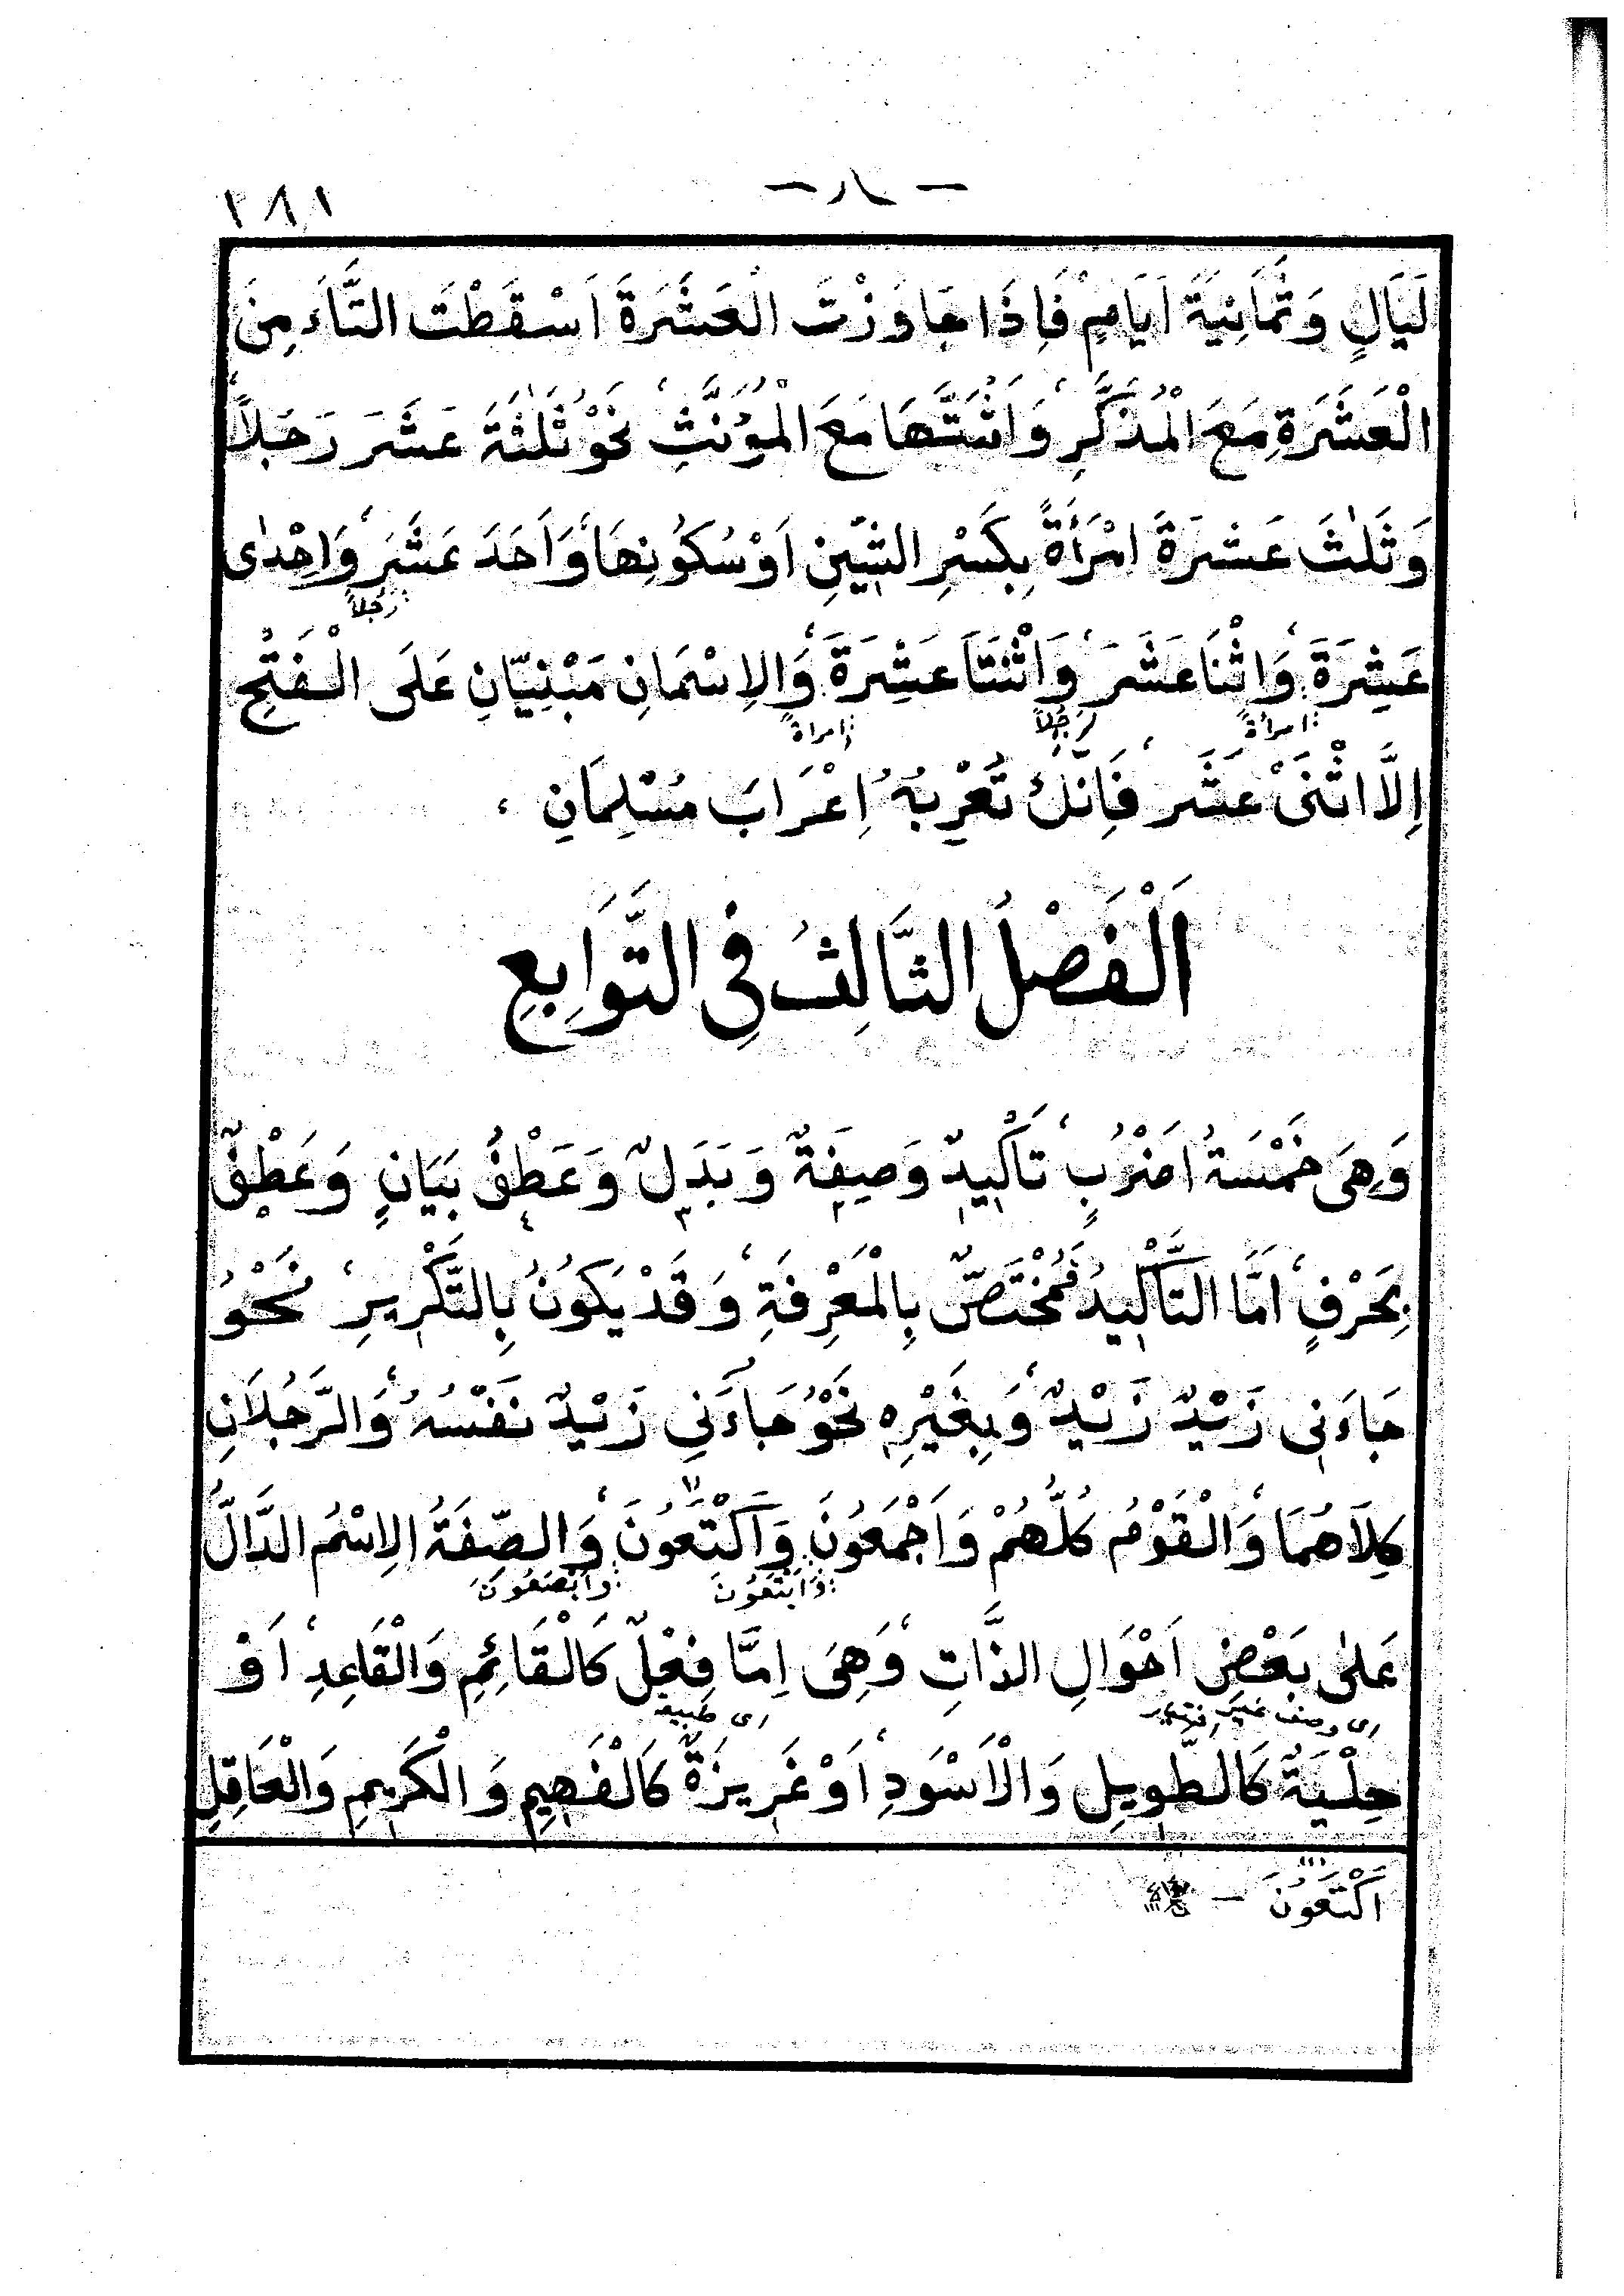 ٢٨١
لَيَالٍ وَثَمَانِيَةَ اَيَّامٍ فَاِذَا جَاوَزْتَ الْعَشَرَةَ اَسْقَطْتَ التَّاءَ مِنَ
الْعَشَرَةِ مَعَ الْمُذَكَّرِ وَاَثْبَتَّهَا مَعَ الْمُؤَنَّثِ نَحْوُ ثَلٰثَةَ عَشَرَ رَجُلاً
وَثَلٰثَ عَشْرَةَ امْرَأَةً بِكَسْرِ الشِّينِ اَوْ سُكُونِهَا وَاَحَدَ عَشَرَ وَاِحْدٰى
رَجُلاً
عَشِرَةَ وَاِثْنَا عَشَرَ وَاِثْنَتَا عَشِرَةَ وَالِاسْمَانِ مَبْنِيَّانِ عَلَى الْفَتْحِ
امرأة رَجُلاً امرأة
اِلَّا اثْنَىْ عَشَرَ فَاِنَّكَ تُعْرِبُهُ اِعْرَابَ مُسْلِمَانِ
اَلْفَصْلُ الثَّالِثُ فِى التَّوَابِعِ
وَهِىَ خَمْسَةُ اَضْرُبٍ تَأْكِيدٌ وَصِفَةٌ وَبَدَلٌ وَعَطْفُ بَيَانٍ وَعَطْفٌ
بِحَرْفٍ اَمَّا التَّأْكِيدُ فَمُخْتَصٌّ بِالْمَعْرِفَةِ وَقَدْ يَكُونُ بِالتَّكْرِيرِ نَحْوُ
جَاءَنِى زَيْدٌ زَيْدٌ وَبِغَيْرِهِ نَحْوُ جَاءَنِى زَيْدٌ نَفْسُهُ وَالرَّجُلاَنِ
كِلاَهُمَا وَالْقَوْمُ كُلُّهُمْ وَاَجْمَعُونَ وَاَكْتَعُونَ وَالصِّفَةُ الِاسْمُ الدَّالُّ
وَاَبْتَعُونَ وَاَبْصَعُونَ
عَلٰى بَعْضِ اَحْوَالِ الذَّاتِ وَهِىَ اِمَّا فِعْلٌ كَالْقَائِمِ وَالْقَاعِدِ اَوْ
اى وصف غير اى طبيعة
حِلْيَةٌ كَالطَّوِيلِ وَالْاَسْوَدِ اَوْ غَرِيزَةٌ كَالْفَهِيمِ وَالْكَرِيمِ وَالْعَاقِلِ
اَكْتَعُونَ –